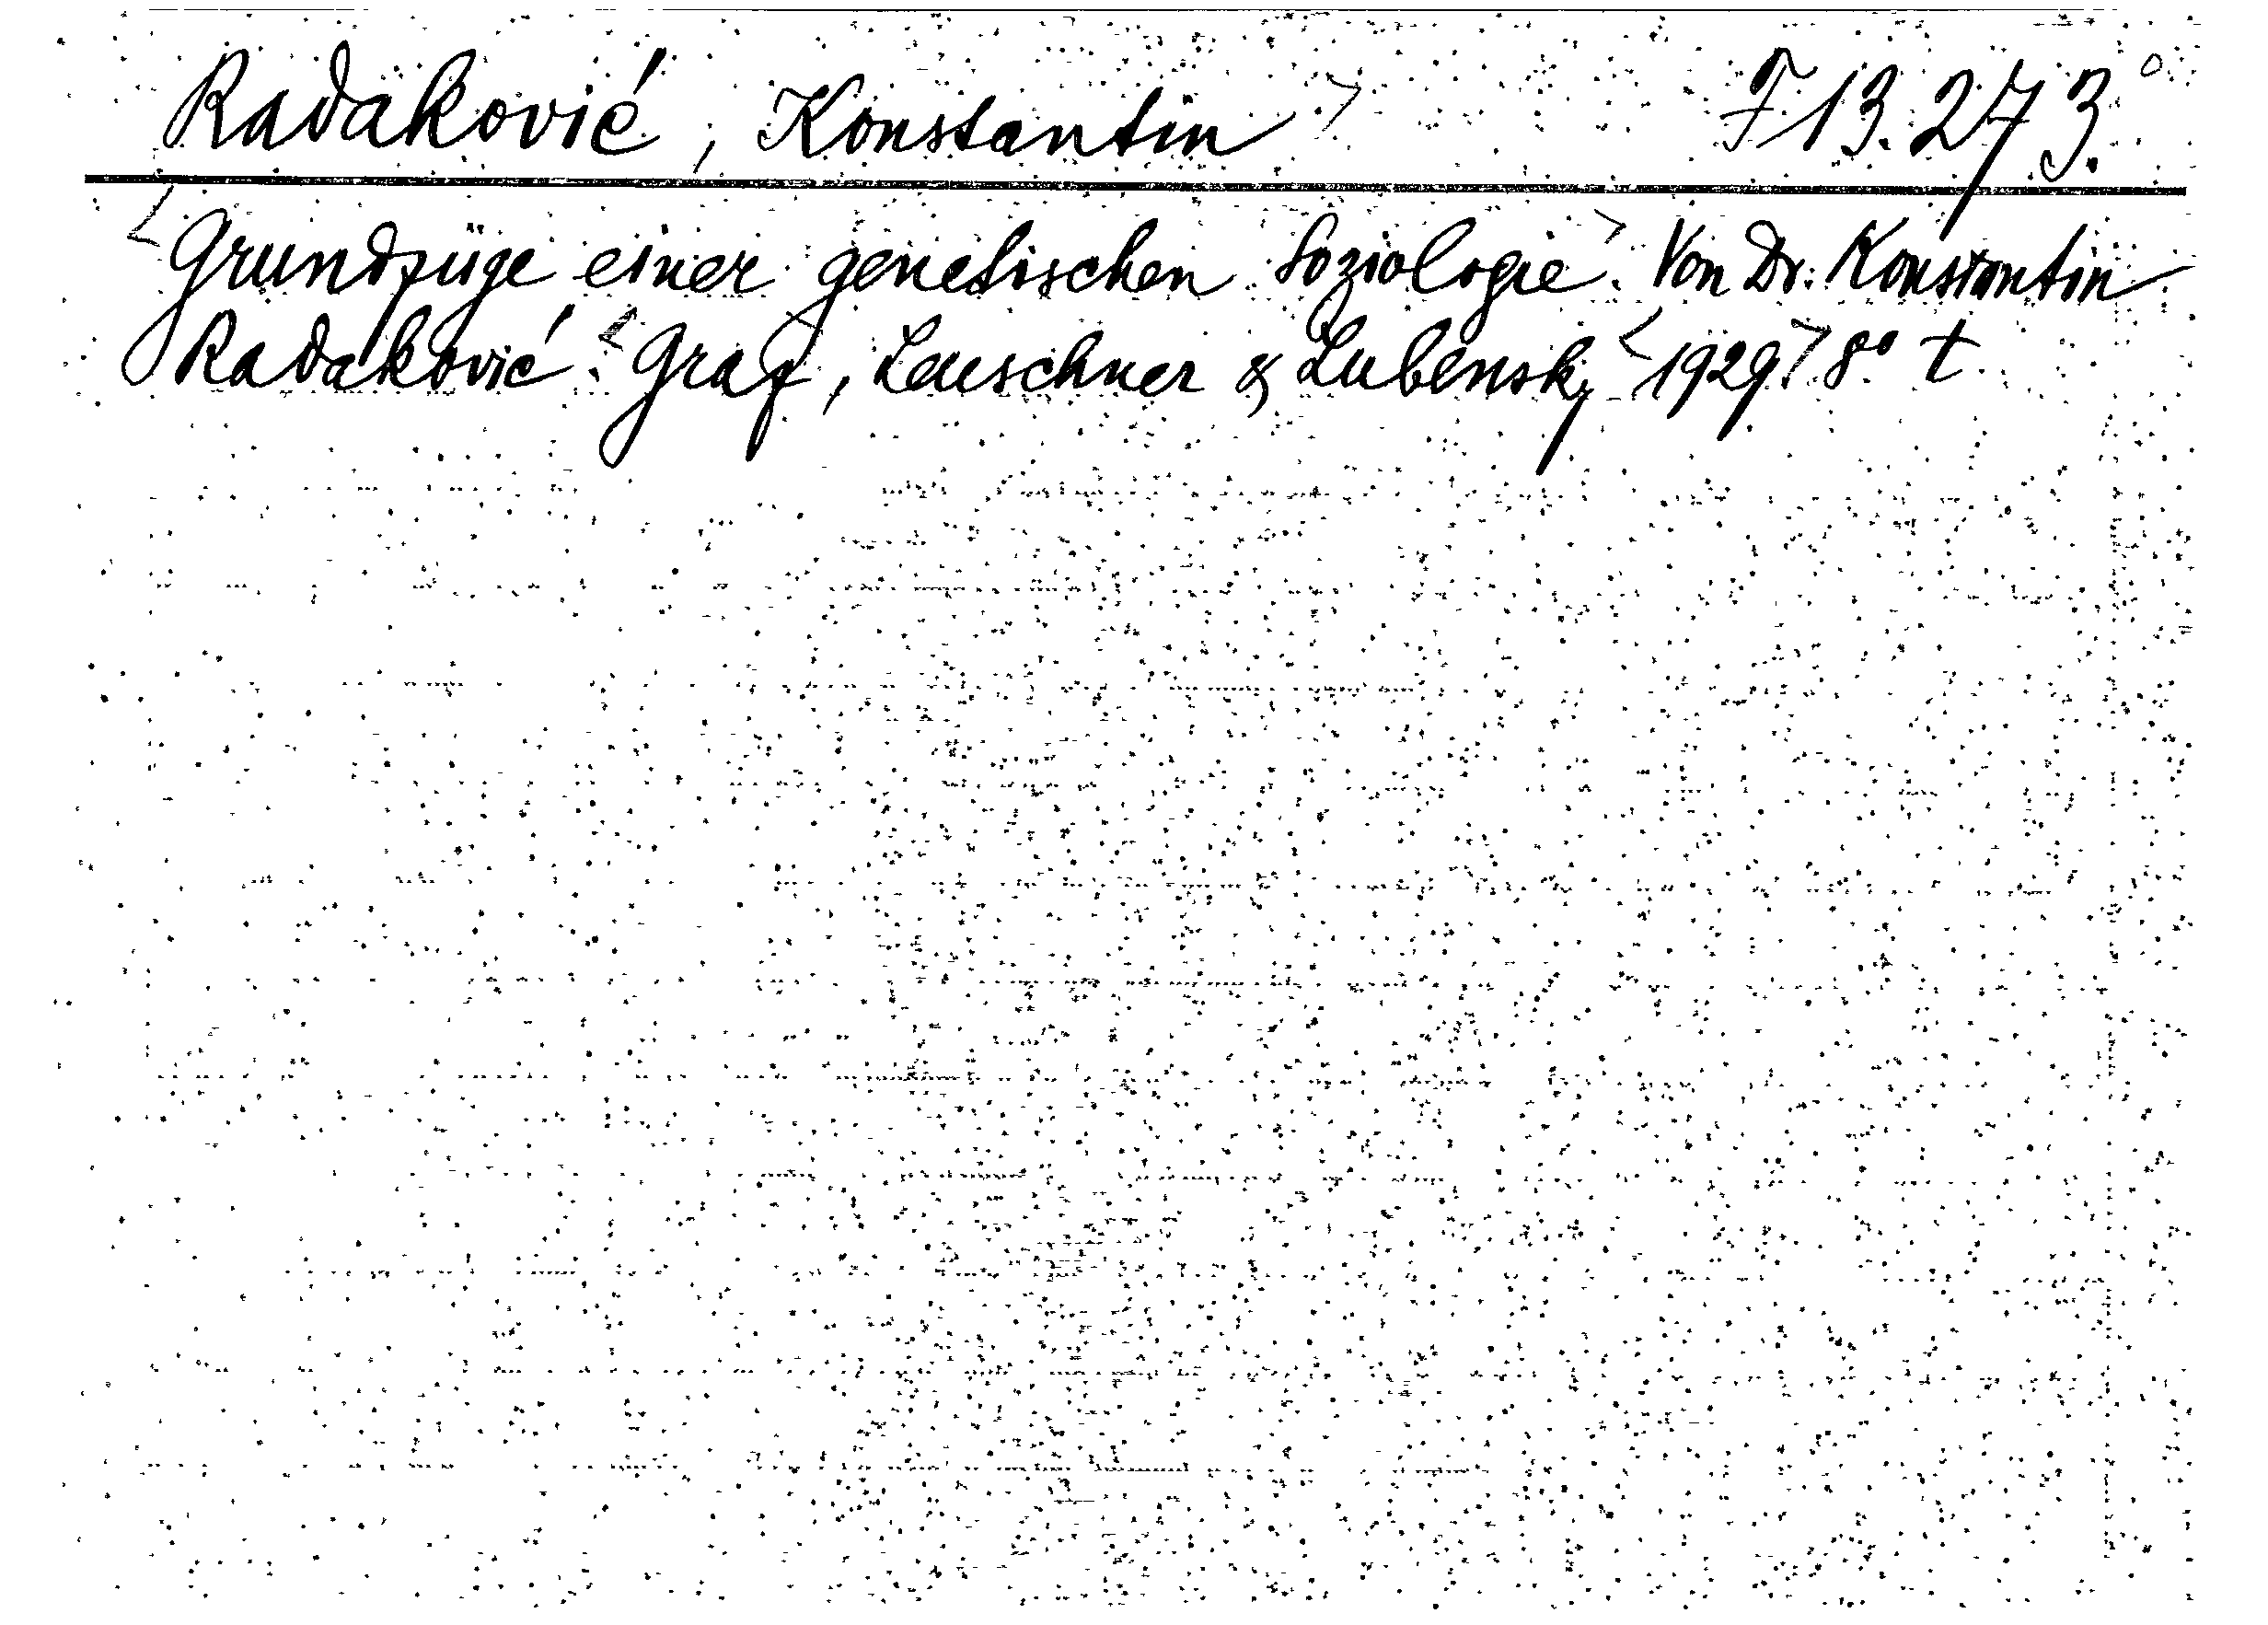 Radaković, Konstantin F 13.273.
Grundzüge einer genetischen Soziologie. Von Dr. Konstantin
Radaković. Graz, Leuschner & Lubensky 1929. 8° t